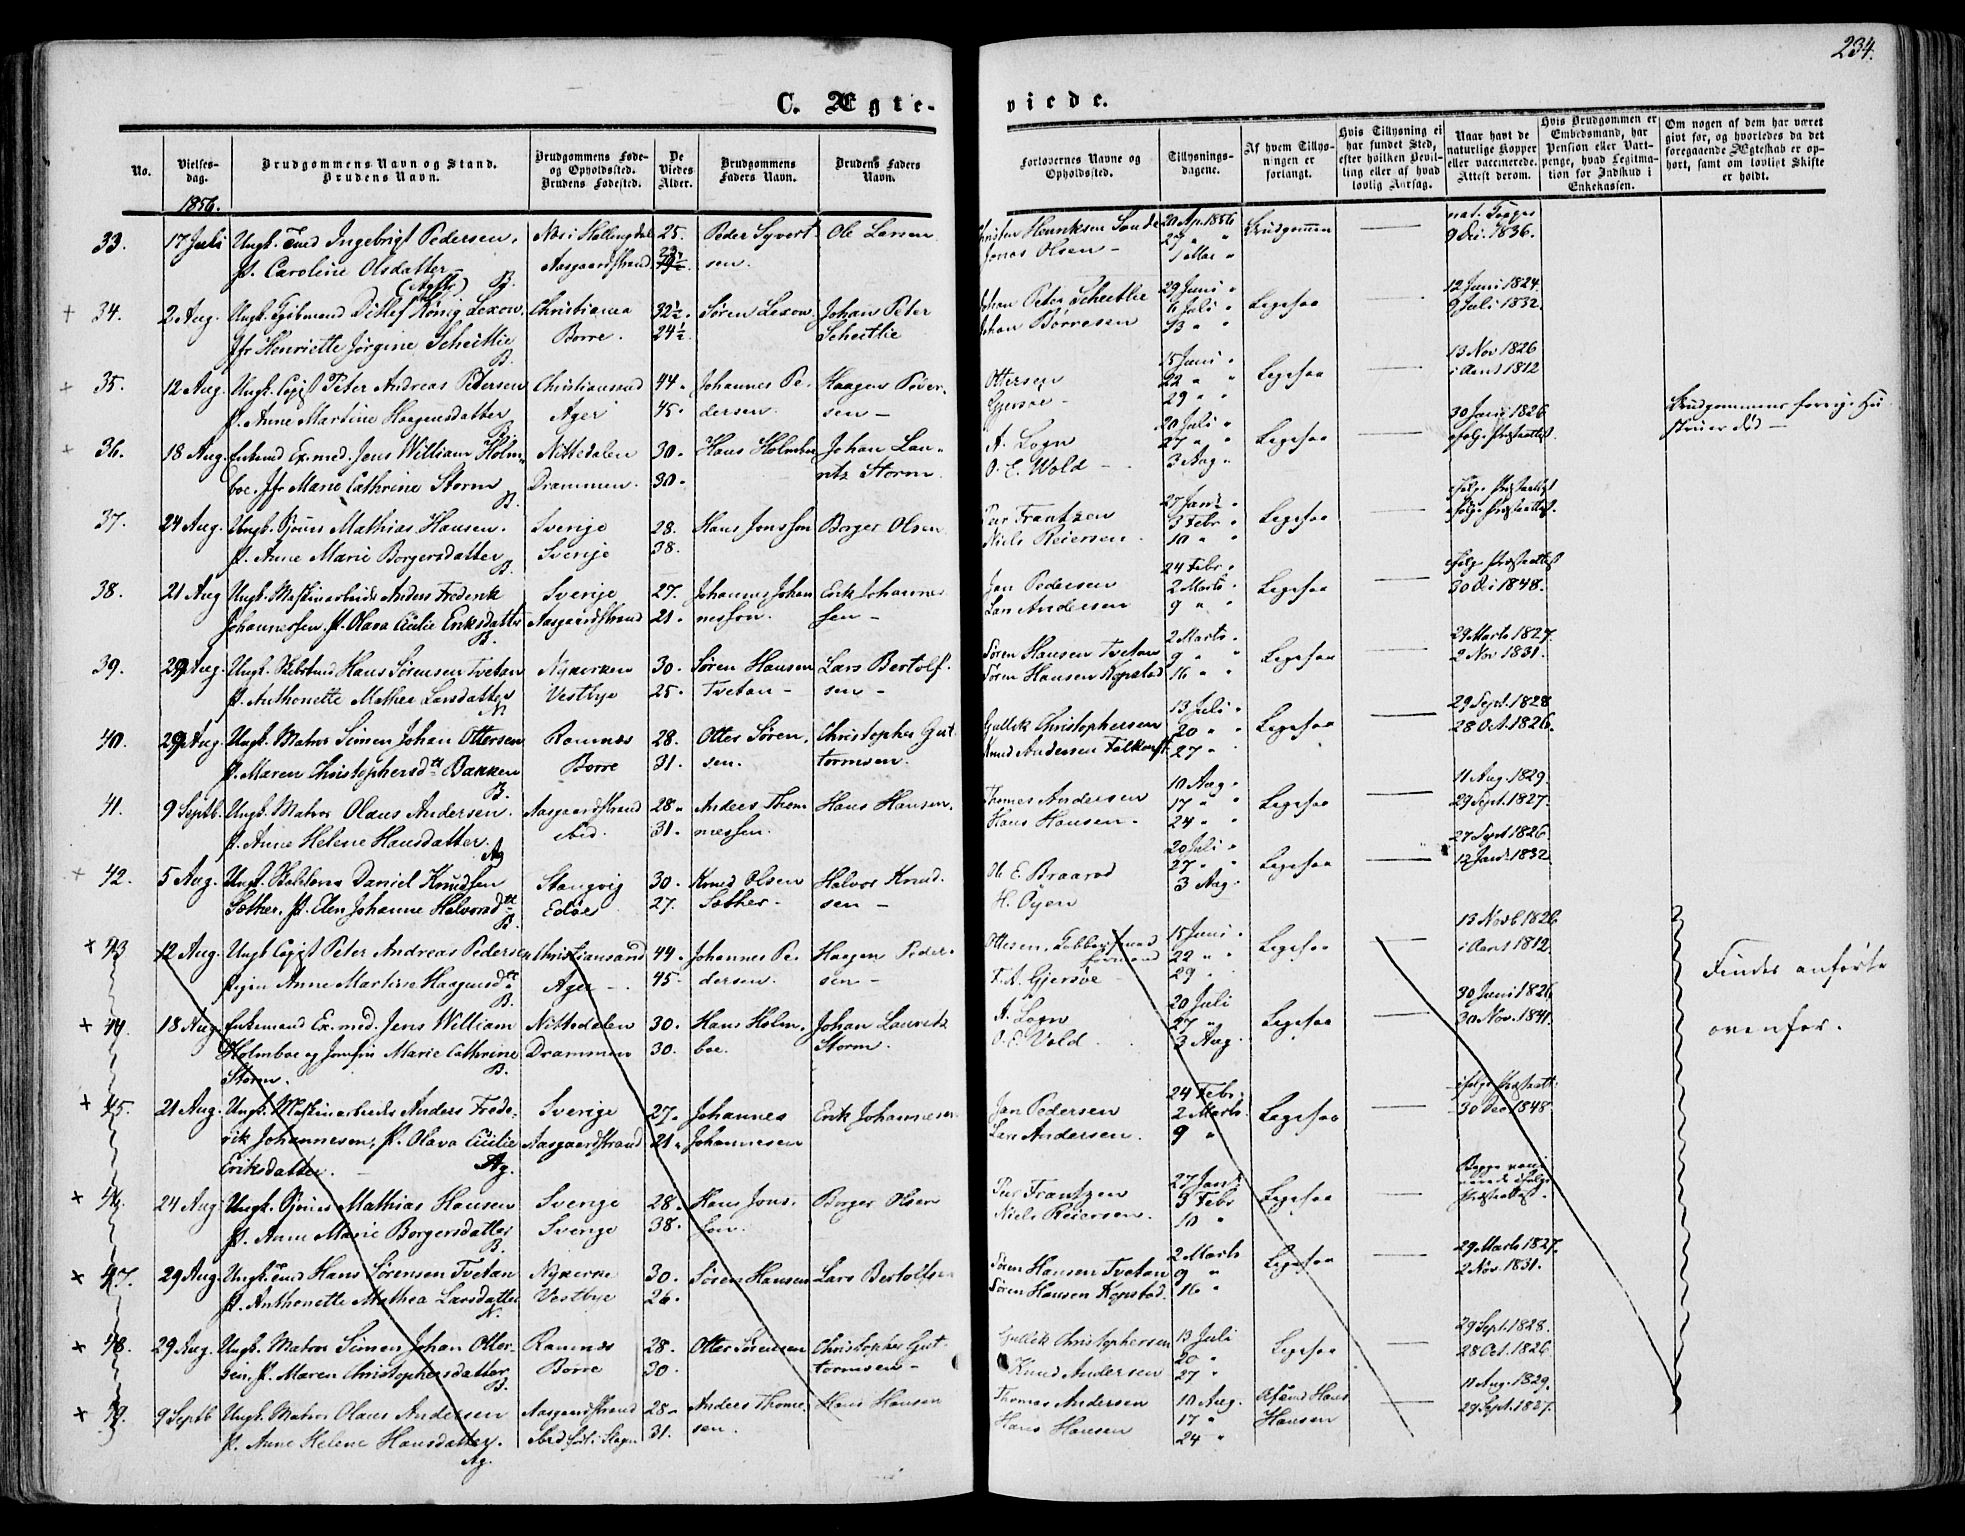 234.
C. Ægte-
viede.
No.
Vielses-
dag.
Brudgommens Navn og Stand.
Brudens Navn.
Brudgommens Føde-
og Opholdssted.
Brudens Fødested.
De
Viedes
Alder.
Brudgommens
Faders Navn.
Brudens Faders
Navn.
Forlovernes Navne og
Opholdssted.
Tillysnings-
dagene.
Af hvem Tillys-
ningen er
forlangt.
Hvis Tillysning ei
har fundet Sted,
efter hvilken Bevil-
ling eller af hvad
lovlig Aarsag.
Naar havt de
naturlige Kopper
eller vaccinerede.
Attest derom.
Hvis Brudgommen er
Embedsmand, har
Pension eller Vart-
penge, hvad Legitima-
tion for Indskud i
Enkekassen.
Om nogen af dem har været
givt før, og hvorledes da det
foregaaende Ægteskab er op-
hørt, samt om lovligt Skifte
er holdt.
1856.
33. 17 Juli Ungk. Ingebrigt Pedersen, Næs i Hallingdal 25. Peder Syvert Ole Larsen
Christen Henriksen Sande 20 Ap. 1856 Brudgommen
P. Caroline Olsdatter Aasgaardstrand sen.
Jonas Olsen 27 " " 9 Dec. 1836.
1 Mai "
B.
34. 2 Aug. Ungk. Ditlef König Lexow Christiania 32½. Søren Lexow Johan Peter
Johan Peter Scheitlie 29 Juni " Legesaa 12 Juni 1824.
Jfr Henriette Jørgine Scheitlie Borre. 24½ Scheitlie
Johan Børresen 6 Juli " 9 Juli 1832.
13 " "
B.
35. 12 Aug. Ungk. Peter Andreas Pedersen Christiansand 44. Johannes Pe- Haagen Peder-
Ottersen 15 Juni " Legesaa 13 Nov 1826
P. Anne Martine Haagensdatter Ager 45. dersen. sen
Gjersøe 22 " " i Aaret 1812
29 " "
B.
36. 18 Aug. Enkemd Ex. med. Jens William Holm- Nittedalen 30. Hans Holmboe Johan Lau-
A. Logn 20 Juli " Legesaa 30 Juni 1826
Brudgommens forrige Hu-
struer død
boe. Jfr Marie Cathrine Storm Drammen. 30. ritz Storm
O. E. Wold 27 " "
3 Aug "
B.
37. 24 Aug. Ungk. Mathias Hansen. Sverige 28. Hans Jonsson Borger Olsen
Per Frantzen 27 Jan. " Legesaa
P. Anne Marie Borgersdatter Sverige 38.
Niels Reiersen 3 Febr "
10 " "
B.
38. 21 Aug Ungk. Maskinarbeider Anders Frederik Sverige 27. Johannes Johan Erik Johannes
Jan Pedersen 24 Febr " Legesaa
Johannessen. P. Olava Cicilie Eriksdatter Aasgaardstrand 21. nesson. sen
Lars Andersen 2 Marts " 30 Dec 1848.
9 " "
B.
39. 29 Aug. Ungk. Hans Sørensen Tvetan Nykirken 30. Søren Hansen Lars Bertolf-
Søren Hansen Tvetan 2 Marts " Legesaa 29 Marts 1827.
P. Anthonette Mathea Larsdatter Vestbye 25. Tvetan sen
Søren Hansen Kopstad 9 " " 2 Nov 1831.
16 " "
N
40. 29 Aug. Ungk. Matros Simen Johan Ottersen Ramnæs 28. Otter Søren- Christopher Gut-
Gullik Christophersen 13 Juli " Legesaa 29 Sept. 1828
P. Maren Christophersdtr Bakken Borre 31. sen. tormsen.
Knud Andersen 20 " 28 Oct. 1826.
27 "
B.
41. 9 Septb. Ungk. Matros Olaus Andersen. Aasgaardstrand 28. Anders Thom- Hans Hansen.
Thomas Andersen 10 Aug " Legesaa 11 Aug. 1829.
P. Anne Helene Hansdatter. ibid. 31. messen.
Hans Hansen. 17 " " 29 Sept. 1827.
24 " "
Ag
42. 5 Aug. Ungk. Daniel Knudsen Stangvig 30. Knud Olsen Halvor Knud-
Ole E. Braarød 20 Juli " Legesaa 27 Sept 1826
Sæther, P. Elen Johanne Halvorsdtr Edøe 27. Sæther. sen
H. Öyen 27 " " 12 Jan. 1832
3 Aug.
B.
43 12 Aug. Ungk Peter Andreas Pedersen Christiansand 44. Johannes Pe- Haagen Peder-
Ottesen, 15 Juni " Legesaa 13 Novb 1826
Pigen Anne Martine Haagensdtr Ager 45. dersen. sen
T. A. Gjersøe 22 " " i Aaret 1812.
29 "
Findes anførte
ovenfor.
B.
44. 18 Aug. Enkemand Ex. med. Jens William Nittedalen 30. Hans Holm- Johan Lauritz
A. Logn 20 Juli Legesaa 30 Juni 1826
Holmboe og Jomfru Marie Cathrine Drammen 30. boe. Storm.
O. E. Vold 27 " 30 Nov. 1841.
3 Aug.
Storm. B.
45. 21 Aug. Ungk. Maskinarbeider Anders Frede- Sverige 27. Johannes Erik Johannesen
Jan Pedersen 24 Febr. Legesaa
rik Johannesen, P. Olava Cicilie Aasgaardstrand 21. Johannesen
Lars Andersen. 2 Marts 30 Dec 1848
9 "
Eriksdatter. Ag.
46. 24 Aug. Ungk. Mathias Hansen Sverige 28. Hans Jons- Borger Olsen
Per Frantzen 27 Jan. Legesaa
P. Anne Marie Borgersdatter Sverige 38. son.
Niels Reiersen. 3 Febr
10 "
B.
47. 29 Aug. Ungk. Hans Sørensen Tvetan Nykirke 30. Søren Hansen Lars Bertolfsen
Søren Hansen Tvetan 2 Marts Legesaa 29 Marts 1827.
P. Anthonette Mathea Larsdatter Vestbye 26.
Søren Hansen Kopstad. 9 " 2 Nov. 1831.
16 "
N.
48. 29 Aug. Ungk. Matros Simen Johan Otter- Ramnæs 28. Otter Sørensen Christopher Gut-
Gullik Christophersen 13 Juli Legesaa 29 Sept. 1828.
sen, P. Maren Christophersdatter Borre 30. tormsen
Knud Andersen 20 " 28 Oct. 1826
27 "
B.
49. 9 Septb Ungk. Matros Olaus Andersen Aasgaardstrand 28. Anders Thome- Hans Hansen
Thomas Andersen 10 Aug. Hans 11 Aug. 1829.
P. Anne Helene Hansdatter. 31. sen.
Hans Hansen 17 " Hansen 29 Sept. 1827.
24 "
Ag.